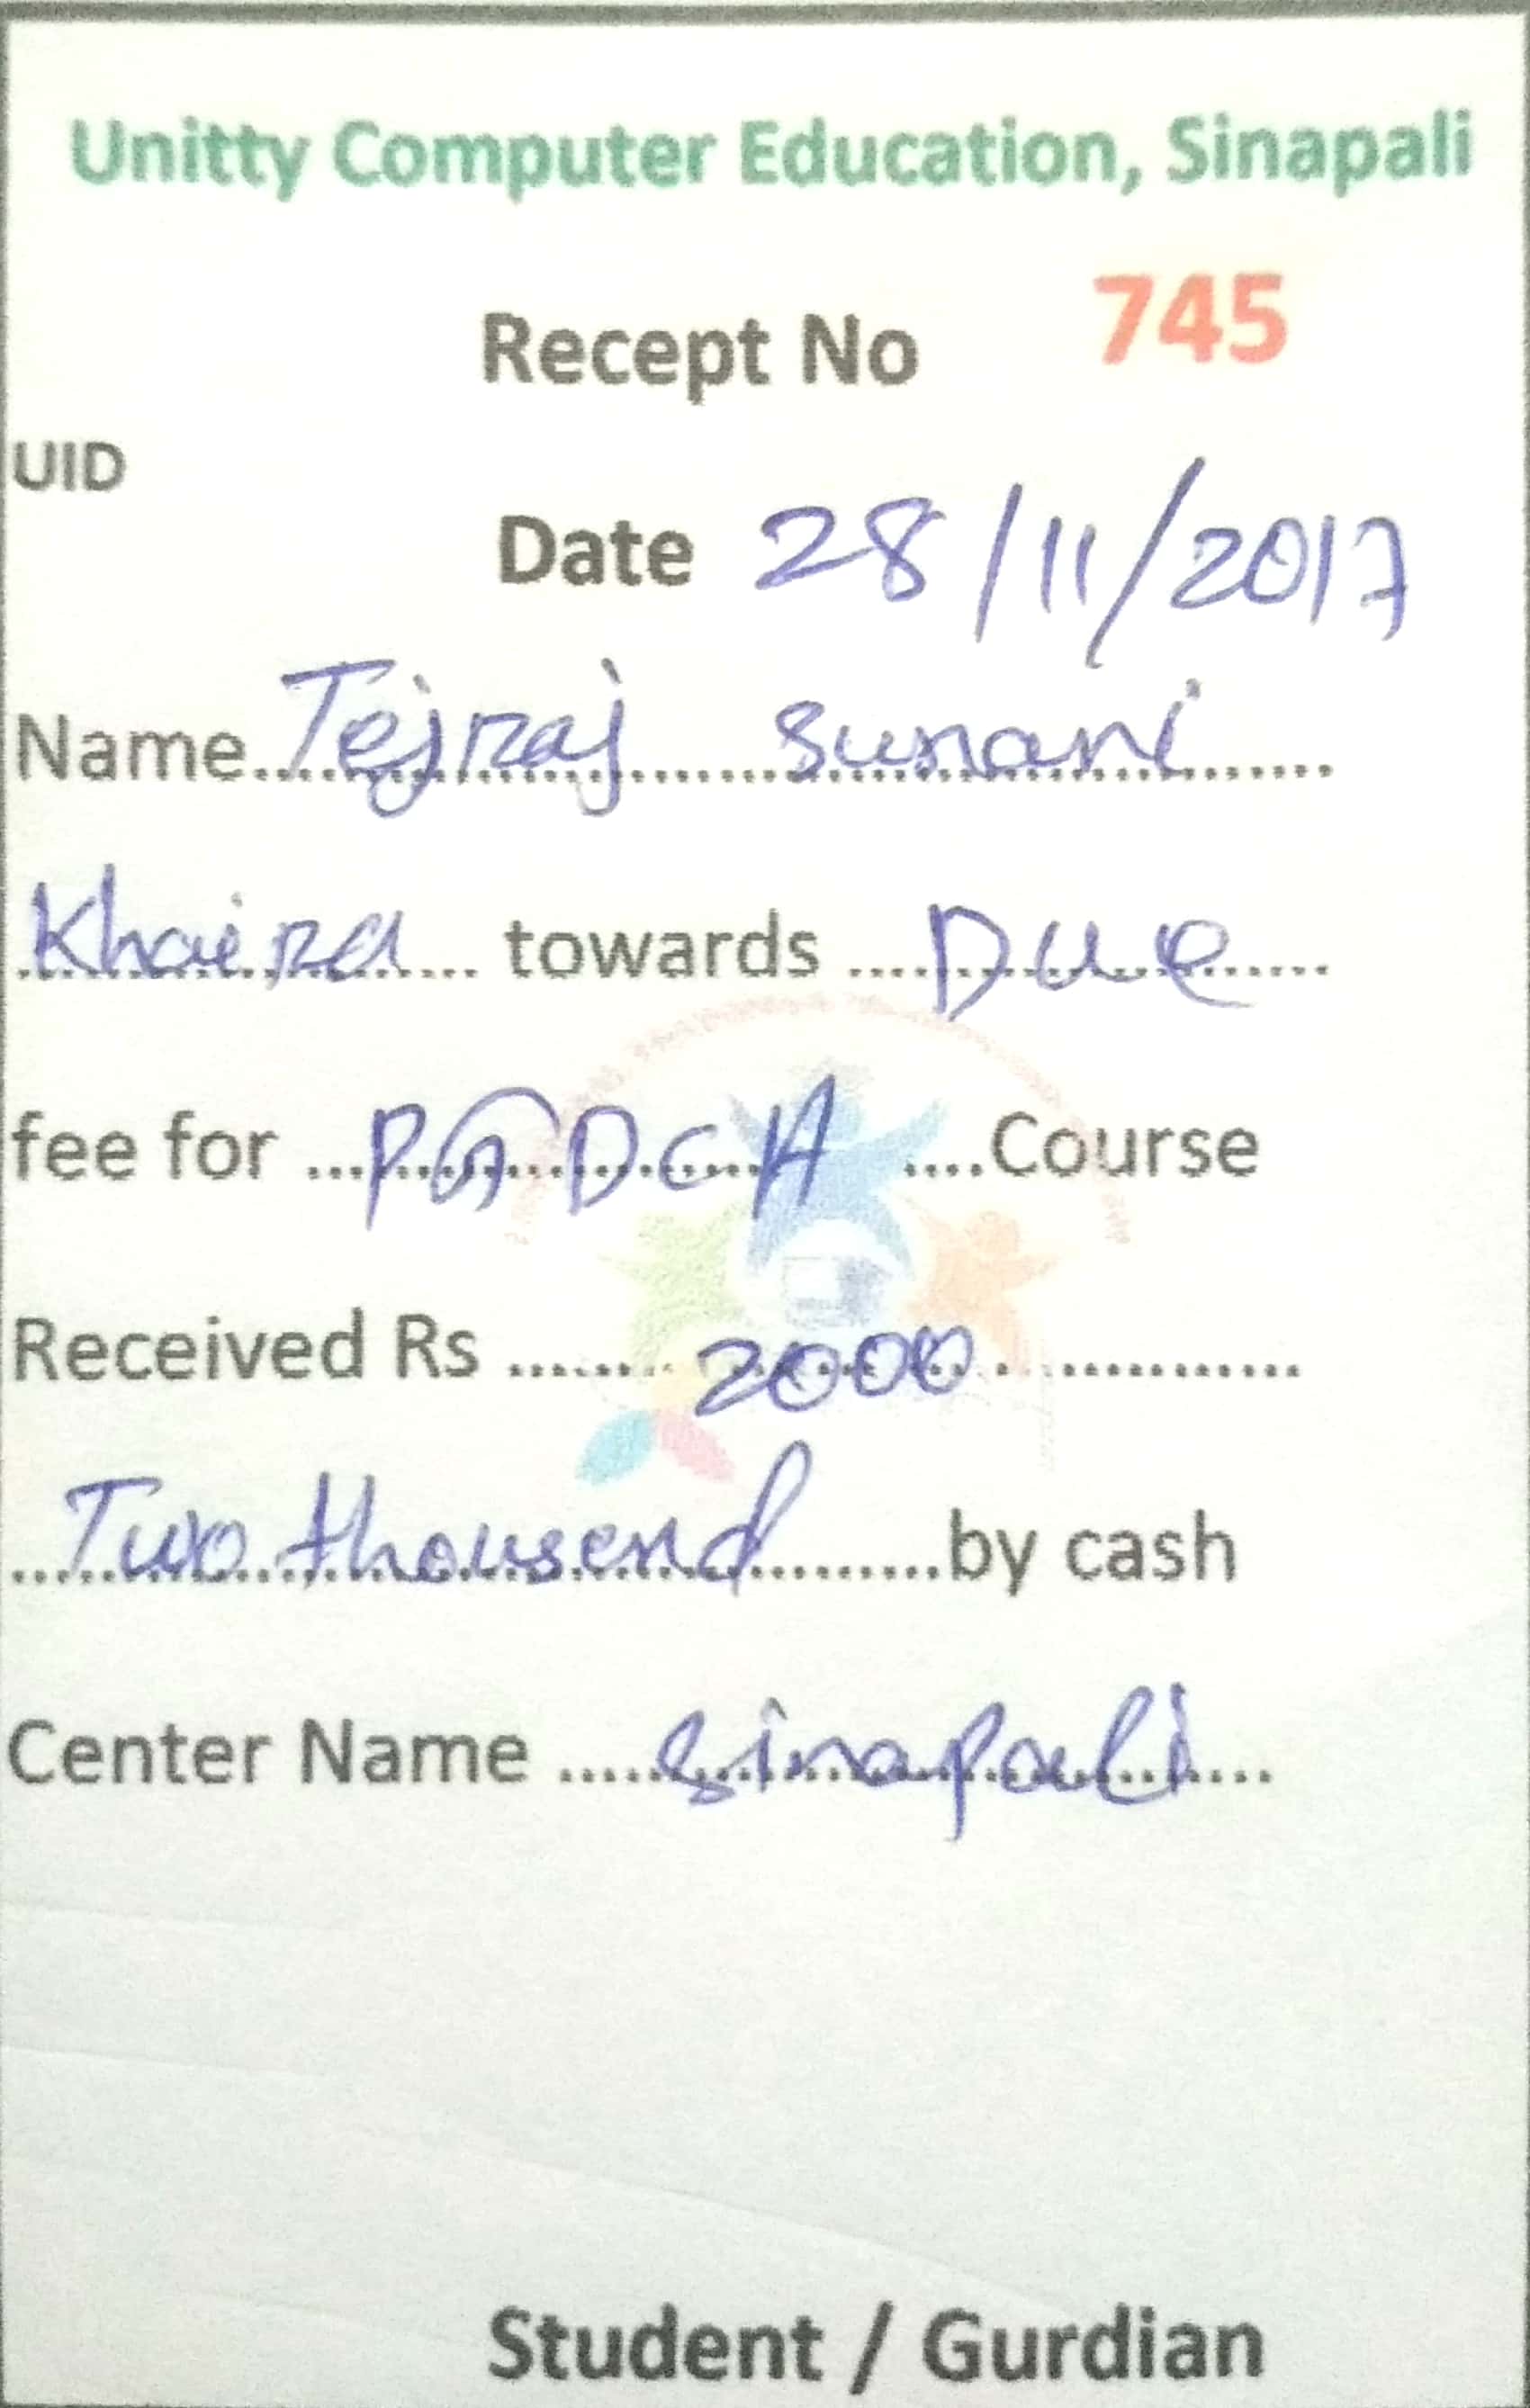 Unitty Computer Education, Sinapali
Recept No 745
UID
Date 28/11/2017
Name Tejraj Sunani
Khaira towards Due
fee for PGDCA Course
Received Rs 2000
Two thousend by cash
Center Name Sinapali
Student / Gurdian